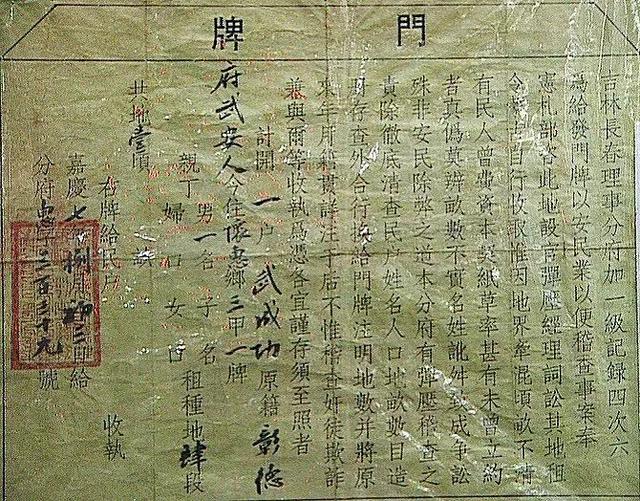 門牌
吉林長春理事分府加一級記錄四次六
為給發門牌以安民業以便稽查事案奉
憲札部咨此地設官彈壓經理詞訟其地租
令 自行收取惟因地界牽混頃畝不清
有民人曾費資本契紙草率甚有未曾立約
者真偽莫辨畝數不實名姓訛舛致成爭訟
殊非安民除弊之道本分府有彈壓稽查之
責除徹底清查民戶姓名人口地畝數目造
冊存查外合行換給門牌注明地數並將原
來年 籍貫詳注于店不惟稽查奸徒欺詐
兼與爾等收執為憑各宜謹存須至照者
計開 一戶 武成功 原籍 彰德
府武安人今住 懷惠鄉 三甲 一牌
親丁 男 一名 子 名 租種地 肆 段
婦 口 女 口
共地 壹 頃 畝
右牌給民戶 收執
嘉慶 七年 捌月 初三 日給
分府 三百三十九 號